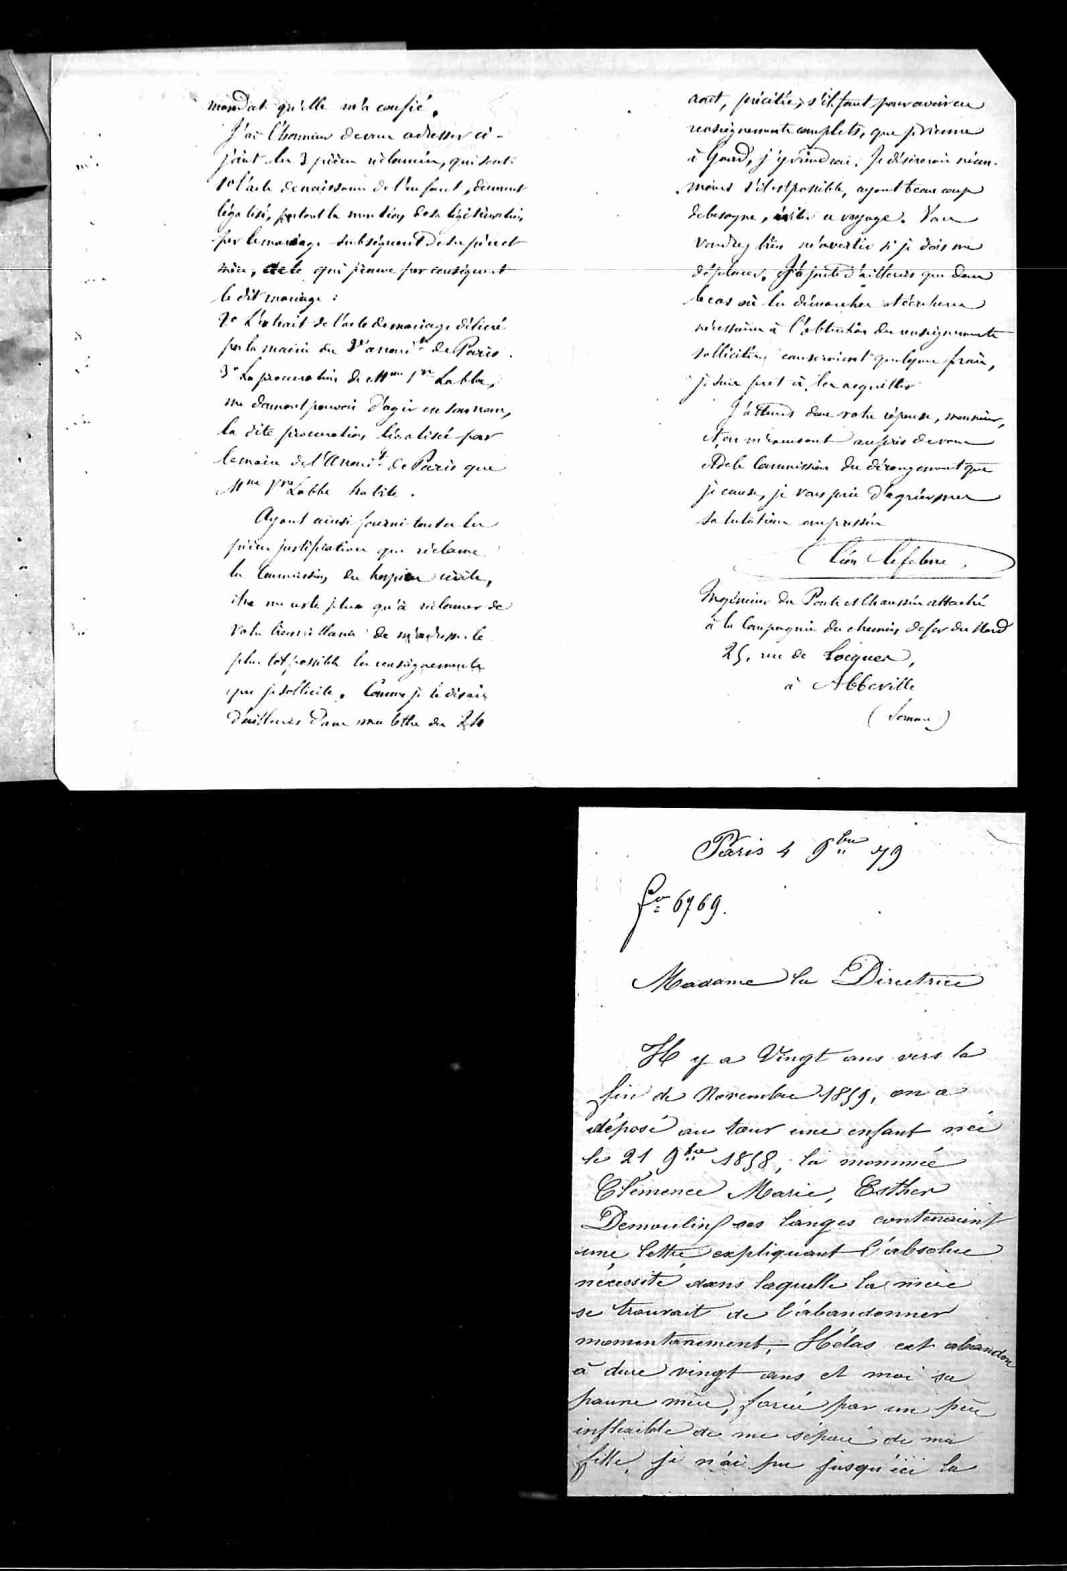 mandat qu'elle m'a confié.
J'ai l'honneur de vous adresser ci-
joint les 3 pièces réclamées, qui sont:
1o l'acte de naissance de l'enfant, dûment
légalisé, portant la mention de sa légitimation
par le mariage subséquent de ses père et
mère, acte qui prouve par conséquent
le dit mariage;
2o L'extrait de l'acte de mariage délivré
par la mairie du 3e arrondt de Paris.
3o La procuration de Mme Labbe,
me donnant pouvoir d'agir en son nom,
la dite procuration légalisée par
le maire de l' arrondt de Paris que
Mme Labbe habite.
Ayant ainsi fourni toutes les
pièces justificatives que réclame
la Commission des hospices civils,
il ne me reste plus qu'à réclamer de
votre bienveillance de m'adresser le
plus tôt possible les renseignements
que je sollicite. Comme je le disais
d'ailleurs dans ma lettre du 24
août, précitée, s'il faut pour avoir ces
renseignements complets, que je vienne
à Gand, j'y viendrai. Je désirerais néan-
moins s'il est possible, ayant beaucoup
de besogne, éviter ce voyage. Vous
voudrez bien m'avertir si je dois me
déplacer. J'ajoute d'ailleurs que dans
le cas où les démarches et écritures
nécessaires à l'obtention des renseignements
sollicités, causeraient quelques frais,
je suis prêt à les acquitter.
J'attends donc votre réponse, monsieur,
et, en m'excusant auprès de vous
et de la Commission du dérangement que
je cause, je vous prie d'agréer mes
salutations empressées
Léon Lefebvre.
Ingénieur des Ponts et Chaussées attaché
à la Compagnie des chemins de fer du Nord
25, rue de Locques,
à Abbeville
(Somme)
Paris 4 9bre 79
fo 6769.
Madame la Directrice
Il y a Vingt ans vers la
fin de Novembre 1859, on a
déposé au tour une enfant née
le 21 9bre 1858, la nommée
Clémence Marie, Esther
Demoulin, ses langes contenaient
une lettre expliquant l'absolue
nécessité dans laquelle la mère
se trouvait de l'abandonner
momentanément, Hélas cet abandon
à duré vingt ans et moi sa
pauvre mère, forcée par un père
inflexible de me séparé de ma
fille, je n'ai pu jusqu'ici la